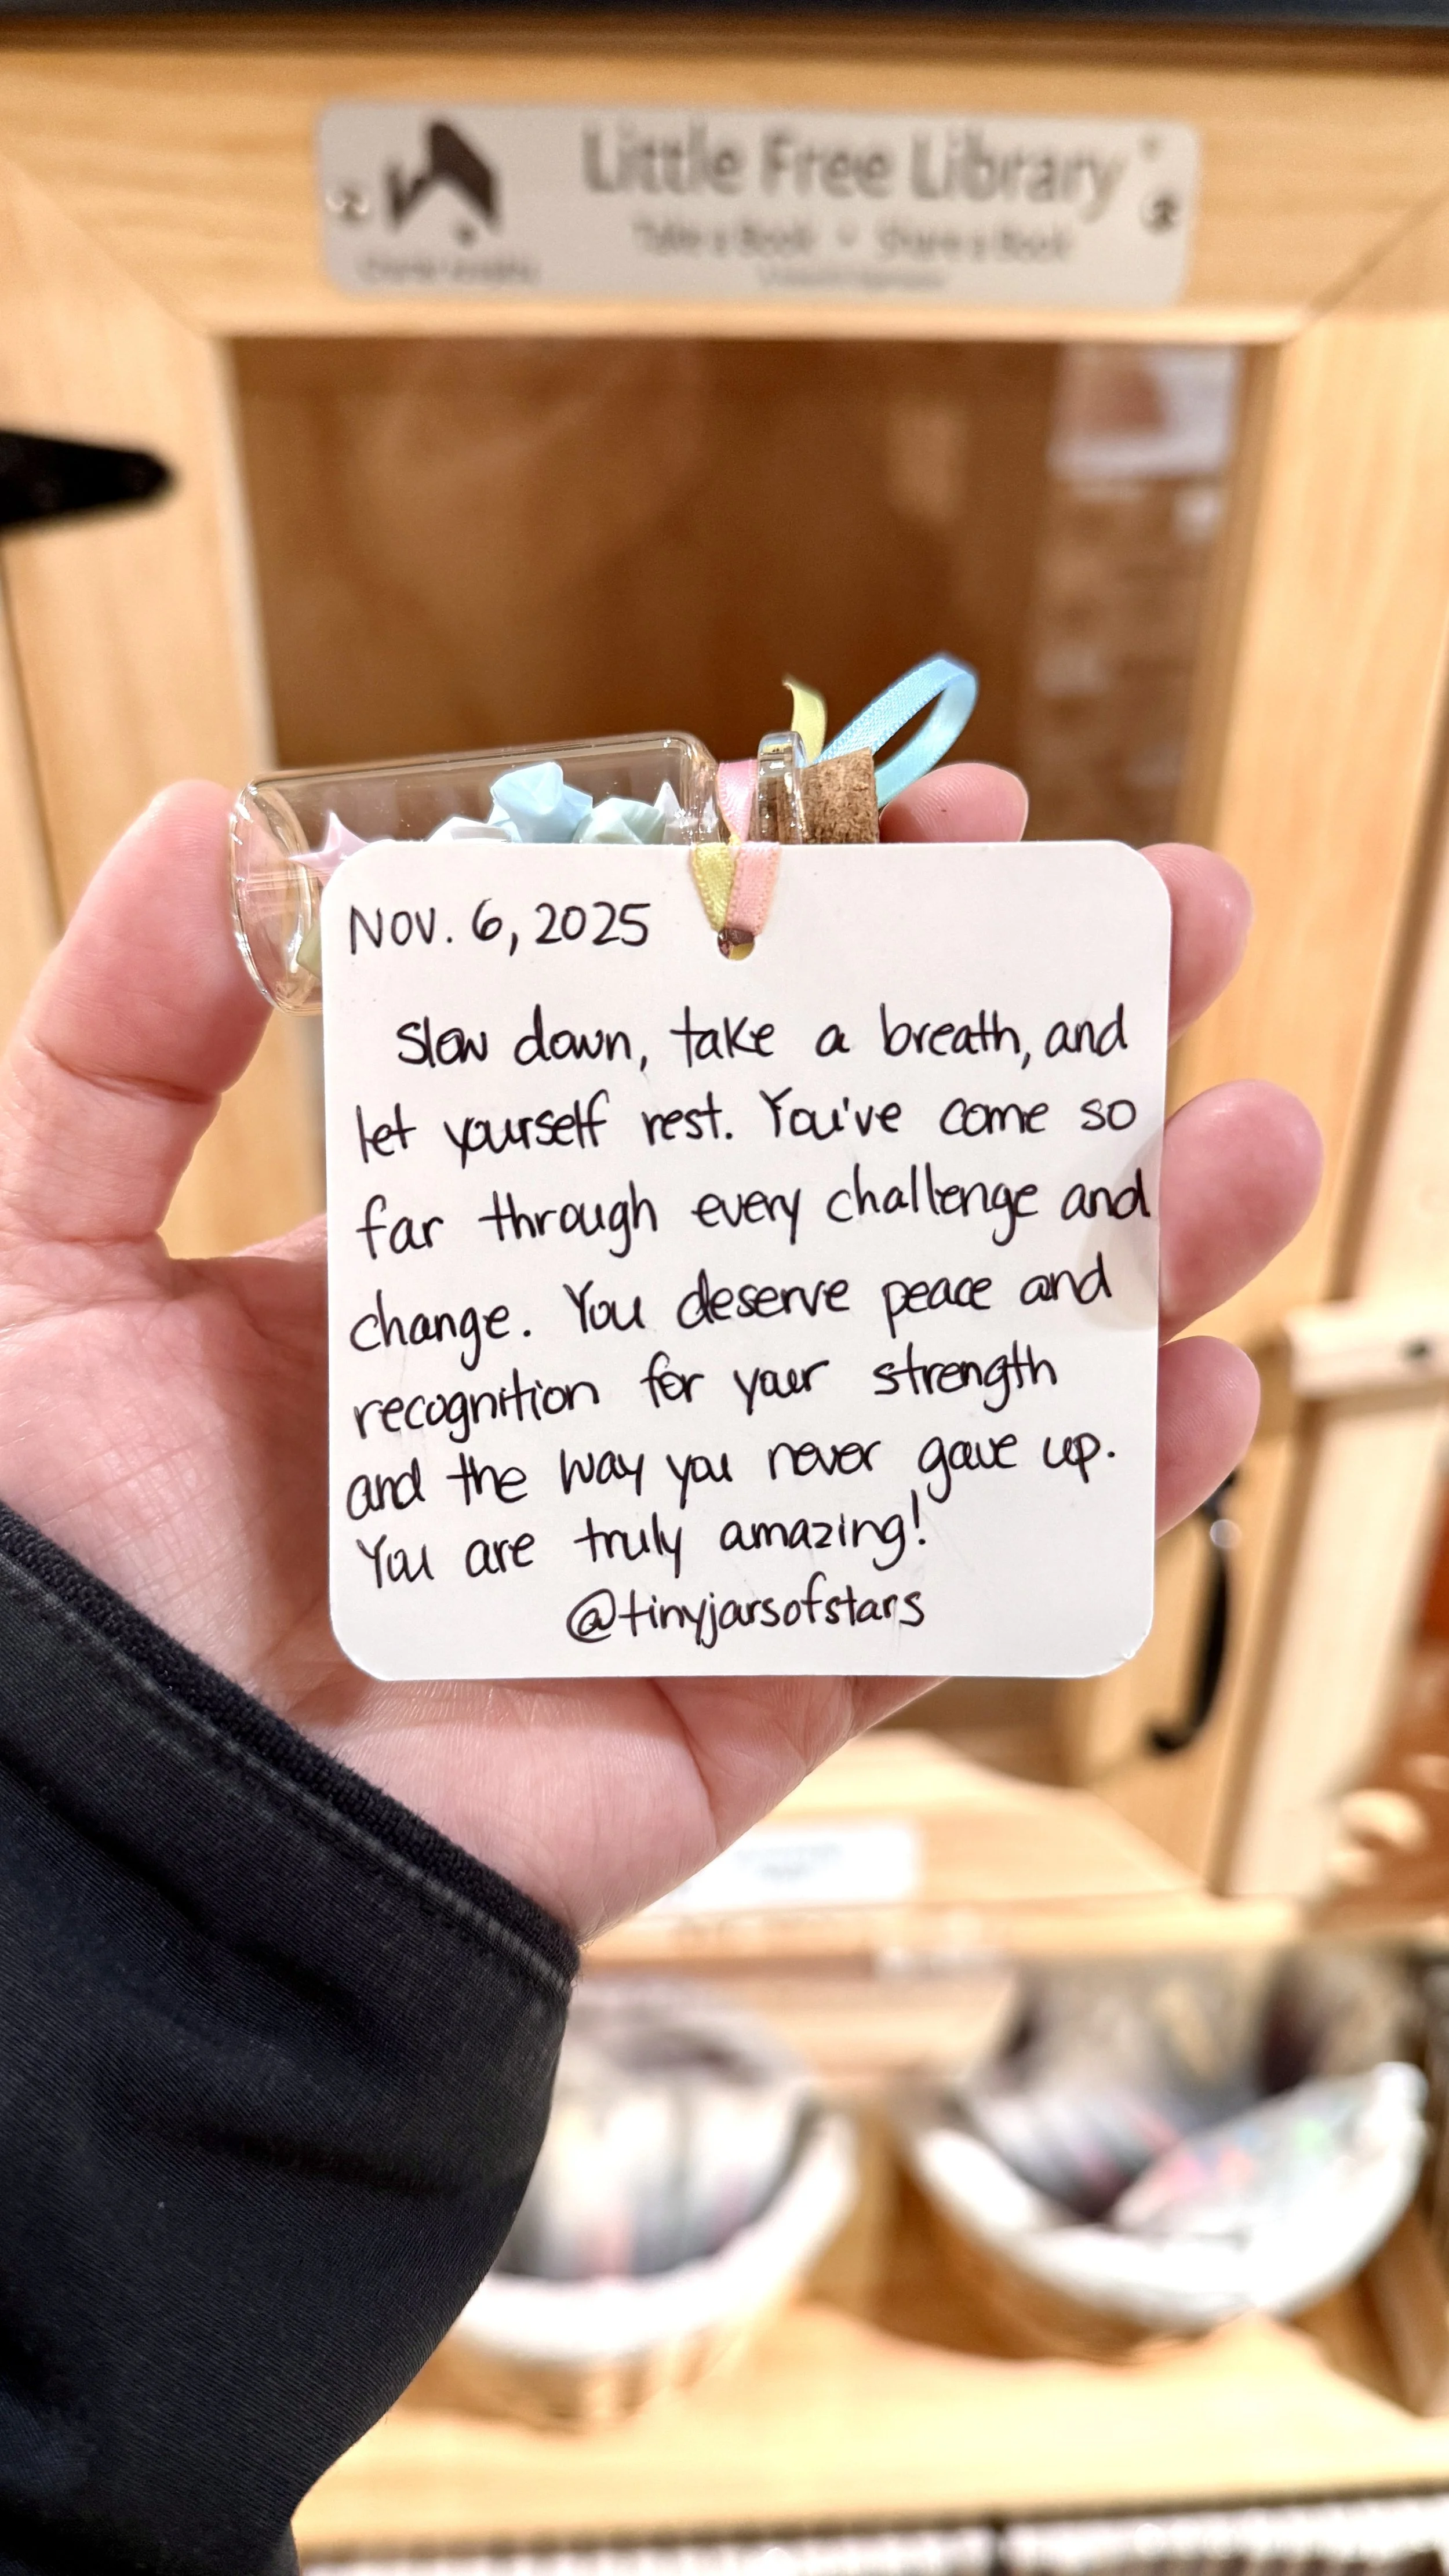 Little Free Library
Take a Book • Share a Book
NOV. 6, 2025
Slow down, take a breath, and
let yourself rest. You've come so
far through every challenge and
change. You deserve peace and
recognition for your strength
and the way you never gave up.
You are truly amazing!
@tinyjarsofstars